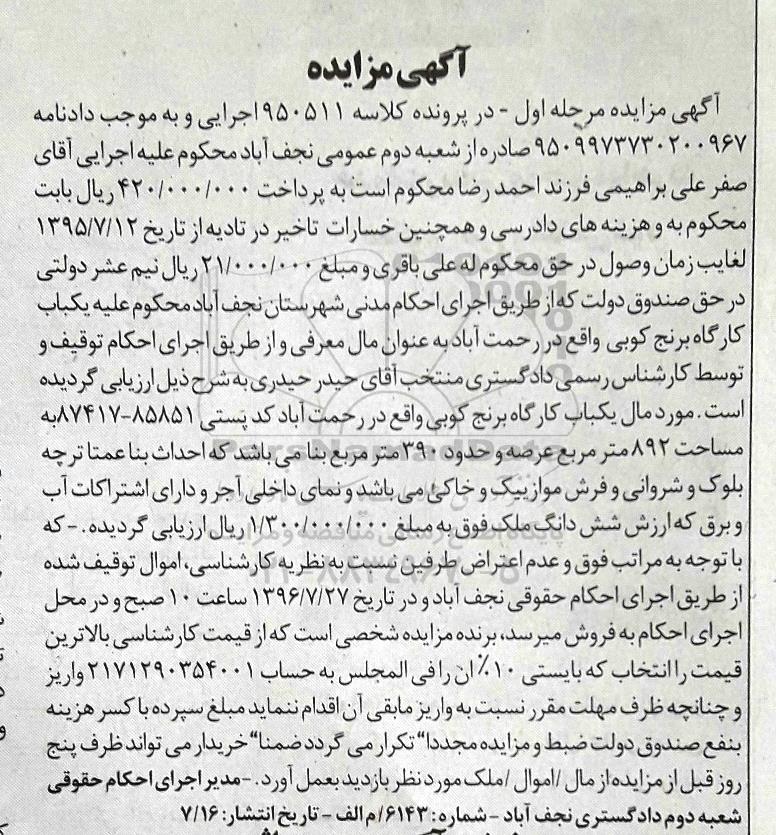 آگهی مزایده
آگهی مزایده مرحله اول - در پرونده کلاسه ۹۵۰۵۱۱ اجرایی و به موجب دادنامه
۹۵۰۹۹۷۳۷۳۰۲۰۰۹۶۷ صادره از شعبه دوم عمومی نجف آباد محکوم علیه اجرایی آقای
صفر علی براهیمی فرزند احمد رضا محکوم است به پرداخت ۴۲۰/۰۰۰/۰۰۰ ریال بابت
محکوم به و هزینه های دادرسی و همچنین خسارات تاخیر در تادیه از تاریخ ۱۳۹۵/۷/۱۲
لغایب زمان وصول در حق محکوم له علی باقری و مبلغ ۲۱/۰۰۰/۰۰۰ ریال نیم عشر دولتی
در حق صندوق دولت که از طریق اجرای احکام مدنی شهرستان نجف آباد محکوم علیه یکباب
کارگاه برنج کوبی واقع در رحمت آباد به عنوان مال معرفی و از طریق اجرای احکام توقیف و
توسط کارشناس رسمی دادگستری منتخب آقای حیدر حیدری به شرح ذیل ارزیابی گردیده
است. مورد مال یکباب کارگاه برنج کوبی واقع در رحمت آباد کد پستی ۸۵۸۵۱-۸۷۴۱۷به
مساحت ۸۹۲ متر مربع عرصه و حدود ۳۹۰ متر مربع بنا می باشد که احداث بنا عمتا ترچه
بلوک و شروانی و فرش موازییک و خاکی می باشد و نمای داخلی آجر و دارای اشتراکات آب
و برق که ارزش شش دانگ ملک فوق به مبلغ ۱/۳۰۰/۰۰۰/۰۰۰ ریال ارزیابی گردیده. - که
با توجه به مراتب فوق و عدم اعتراض طرفین نسبت به نظریه کارشناسی، اموال توقیف شده
از طریق اجرای احکام حقوقی نجف آباد و در تاریخ ۱۳۹۶/۷/۲۷ ساعت ۱۰ صبح و در محل
اجرای احکام به فروش میرسد، برنده مزایده شخصی است که از قیمت کارشناسی بالاترین
قیمت را انتخاب که بایستی ۱۰٪ ان را فی المجلس به حساب ۲۱۷۱۲۹۰۳۵۴۰۰۱ واریز
و چنانچه ظرف مهلت مقرر نسبت به واریز مابقی آن اقدام ننماید مبلغ سپرده با کسر هزینه
بنفع صندوق دولت ضبط و مزایده مجددا" تکرار می گردد ضمنا" خریدار می تواند ظرف پنج
روز قبل از مزایده از مال /اموال /ملک مورد نظر بازدید بعمل آورد. -مدیر اجرای احکام حقوقی
شعبه دوم دادگستری نجف آباد - شماره: ۶۱۴۳/م الف - تاریخ انتشار: ۷/۱۶
ParsNamadData